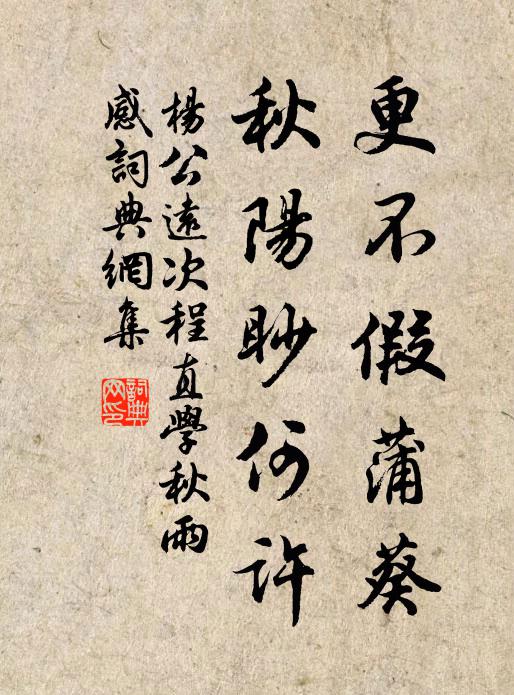 更不假蒲葵
秋陽眇何許
楊公遠次程直學秋雨
感詞典網集
詞典網印